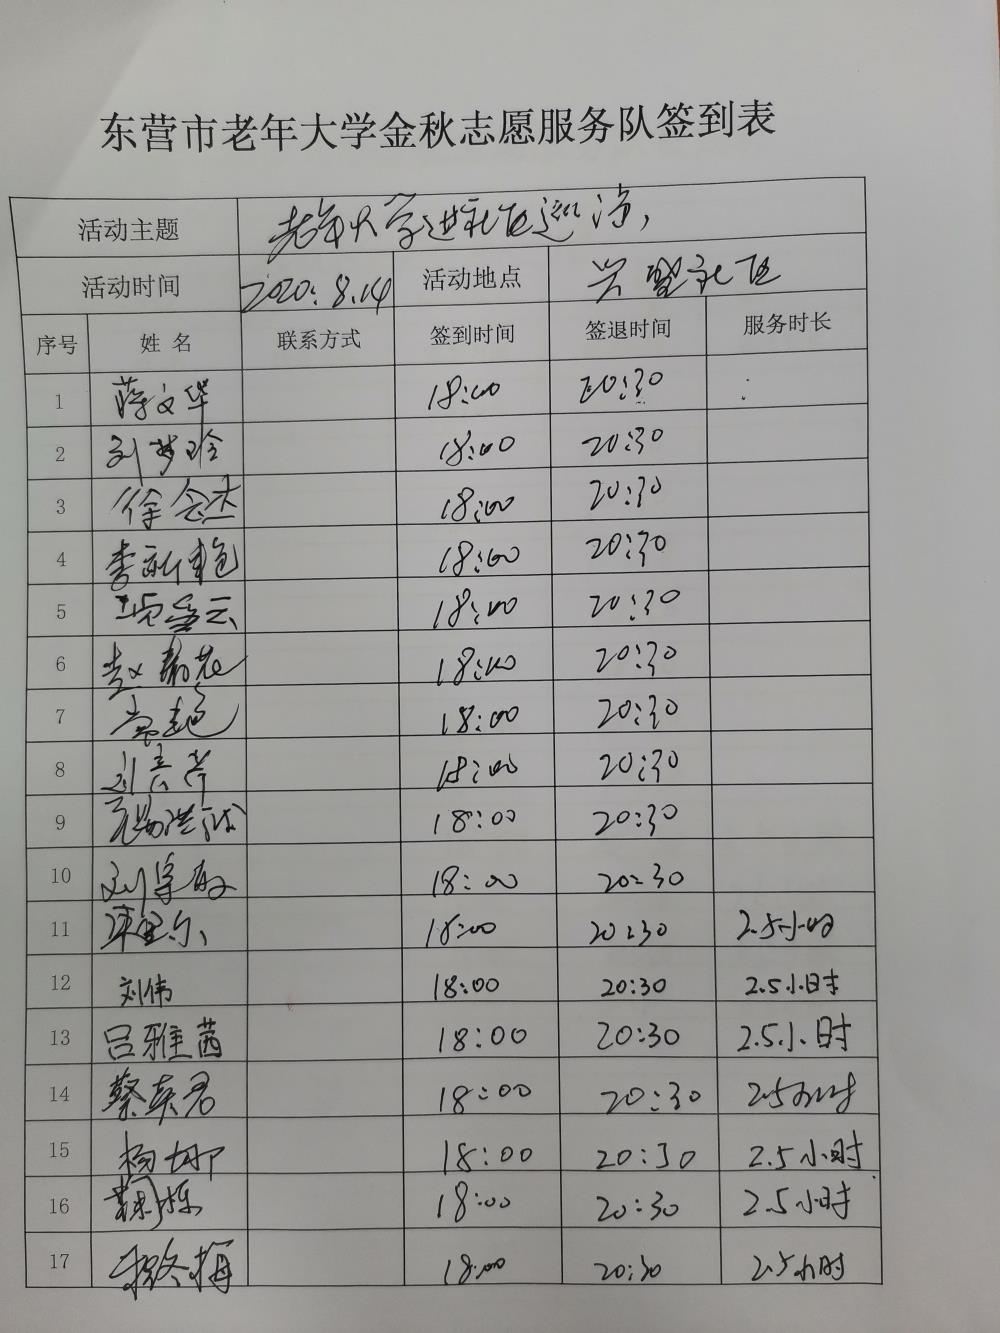 东营市老年大学金秋志愿服务队签到表
活动主题 老年大学进社区巡演
活动时间 2020.8.14 活动地点 兴盟社区
序号 姓 名 联系方式 签到时间 签退时间 服务时长
1 蒋文华 18:00 20:30
2 刘梦玲 18:00 20:30
3 徐念杰 18:00 20:30
4 李新艳 18:00 20:30
5 18:00 20:30
6 赵菊花 18:00 20:30
7 常艳 18:00 20:30
8 刘芳 18:00 20:30
9 18:00 20:30
10 刘学敏 18:00 20:30
11 18:00 20:30 2.5小时
12 刘伟 18:00 20:30 2.5小时
13 吕雅茜 18:00 20:30 2.5小时
14 蔡英君 18:00 20:30 2.5小时
15 杨娜 18:00 20:30 2.5小时
16 18:00 20:30 2.5小时
17 18:00 20:30 2.5小时